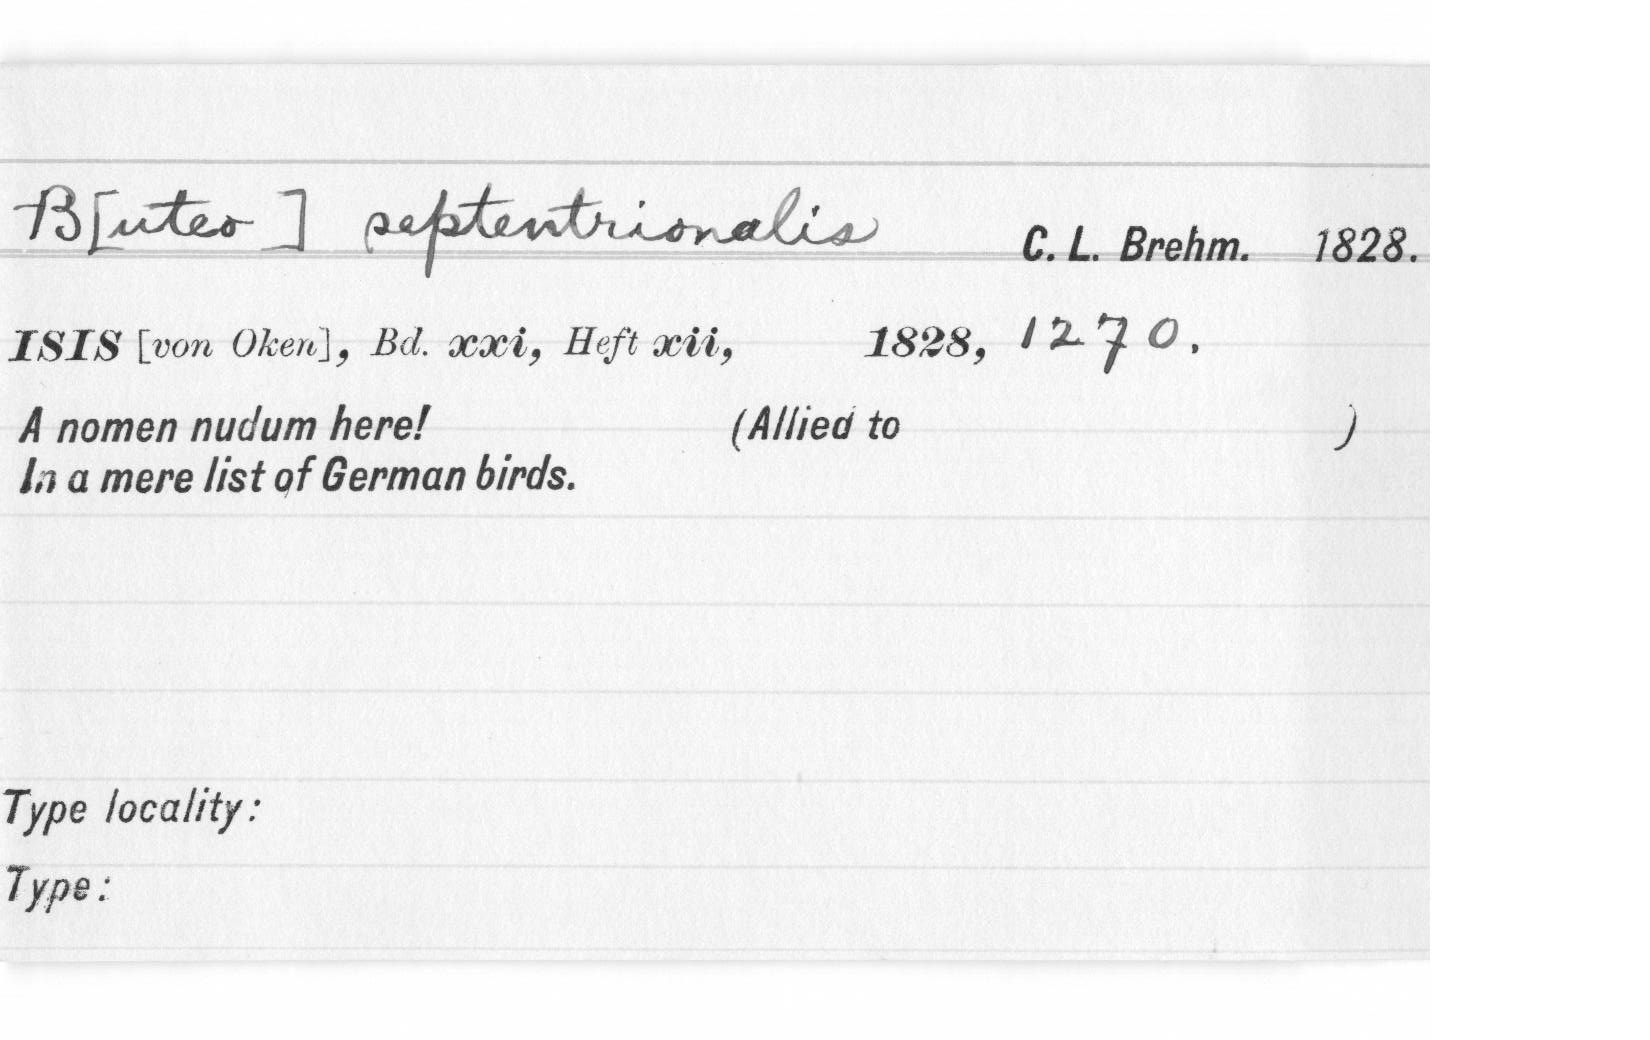 B[uteo] septentrionalis C. L. Brehm. 1828.
ISIS [von Oken], Bd. xxi, Heft xii, 1828, 1270.
A nomen nudum here! (Allied to )
In a mere list of German birds.
Type locality:
Type: